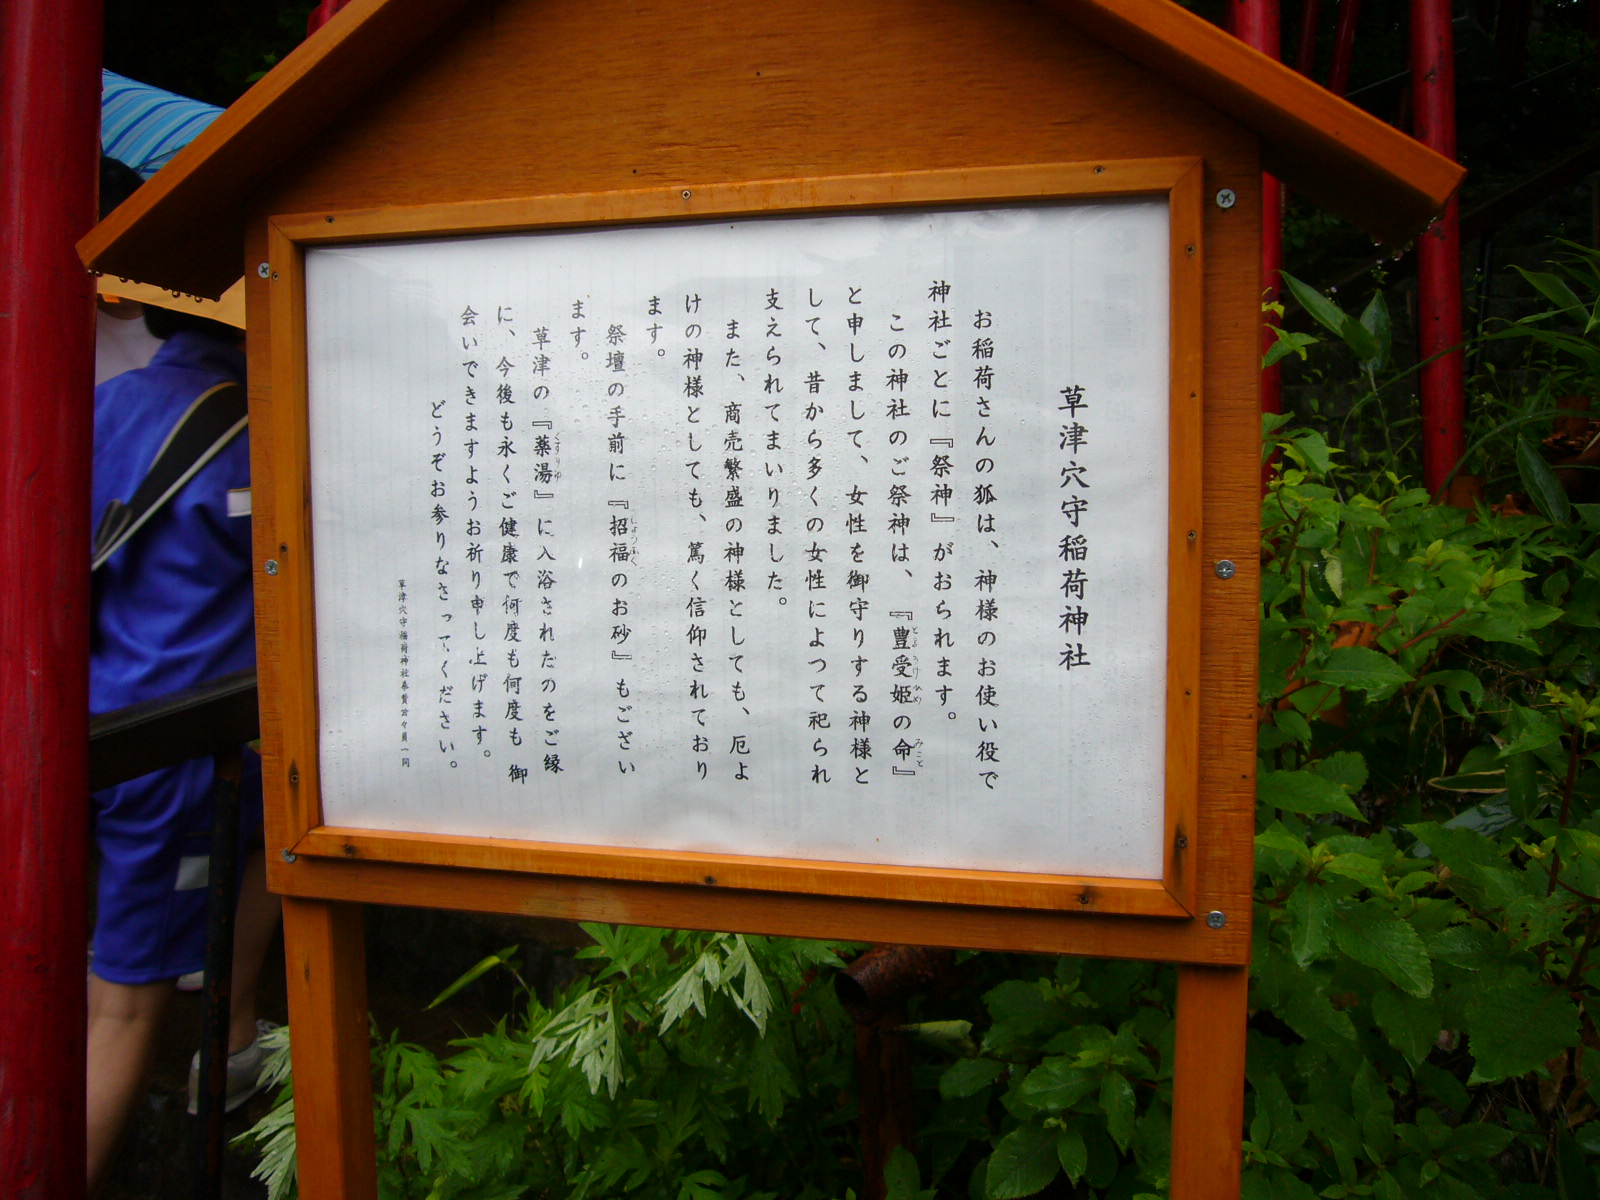 草津穴守稲荷神社
お稲荷さんの狐は、神様のお使い役で
神社ごとに『祭神』がおられます。
この神社のご祭神は、『豊受姫の命』
と申しまして、女性を御守りする神様と
して、昔から多くの女性によって祀られ
支えられてまいりました。
また、商売繁盛の神様としても、厄よ
けの神様としても、篤く信仰されており
ます。
祭壇の手前に『招福のお砂』もござい
ます。
草津の『薬湯』に入浴されたのをご縁
に、今後も永くご健康で何度も何度も御
会いできますようお祈り申し上げます。
どうぞお参りなさってください。
草津穴守稲荷神社奉賛会々員一同